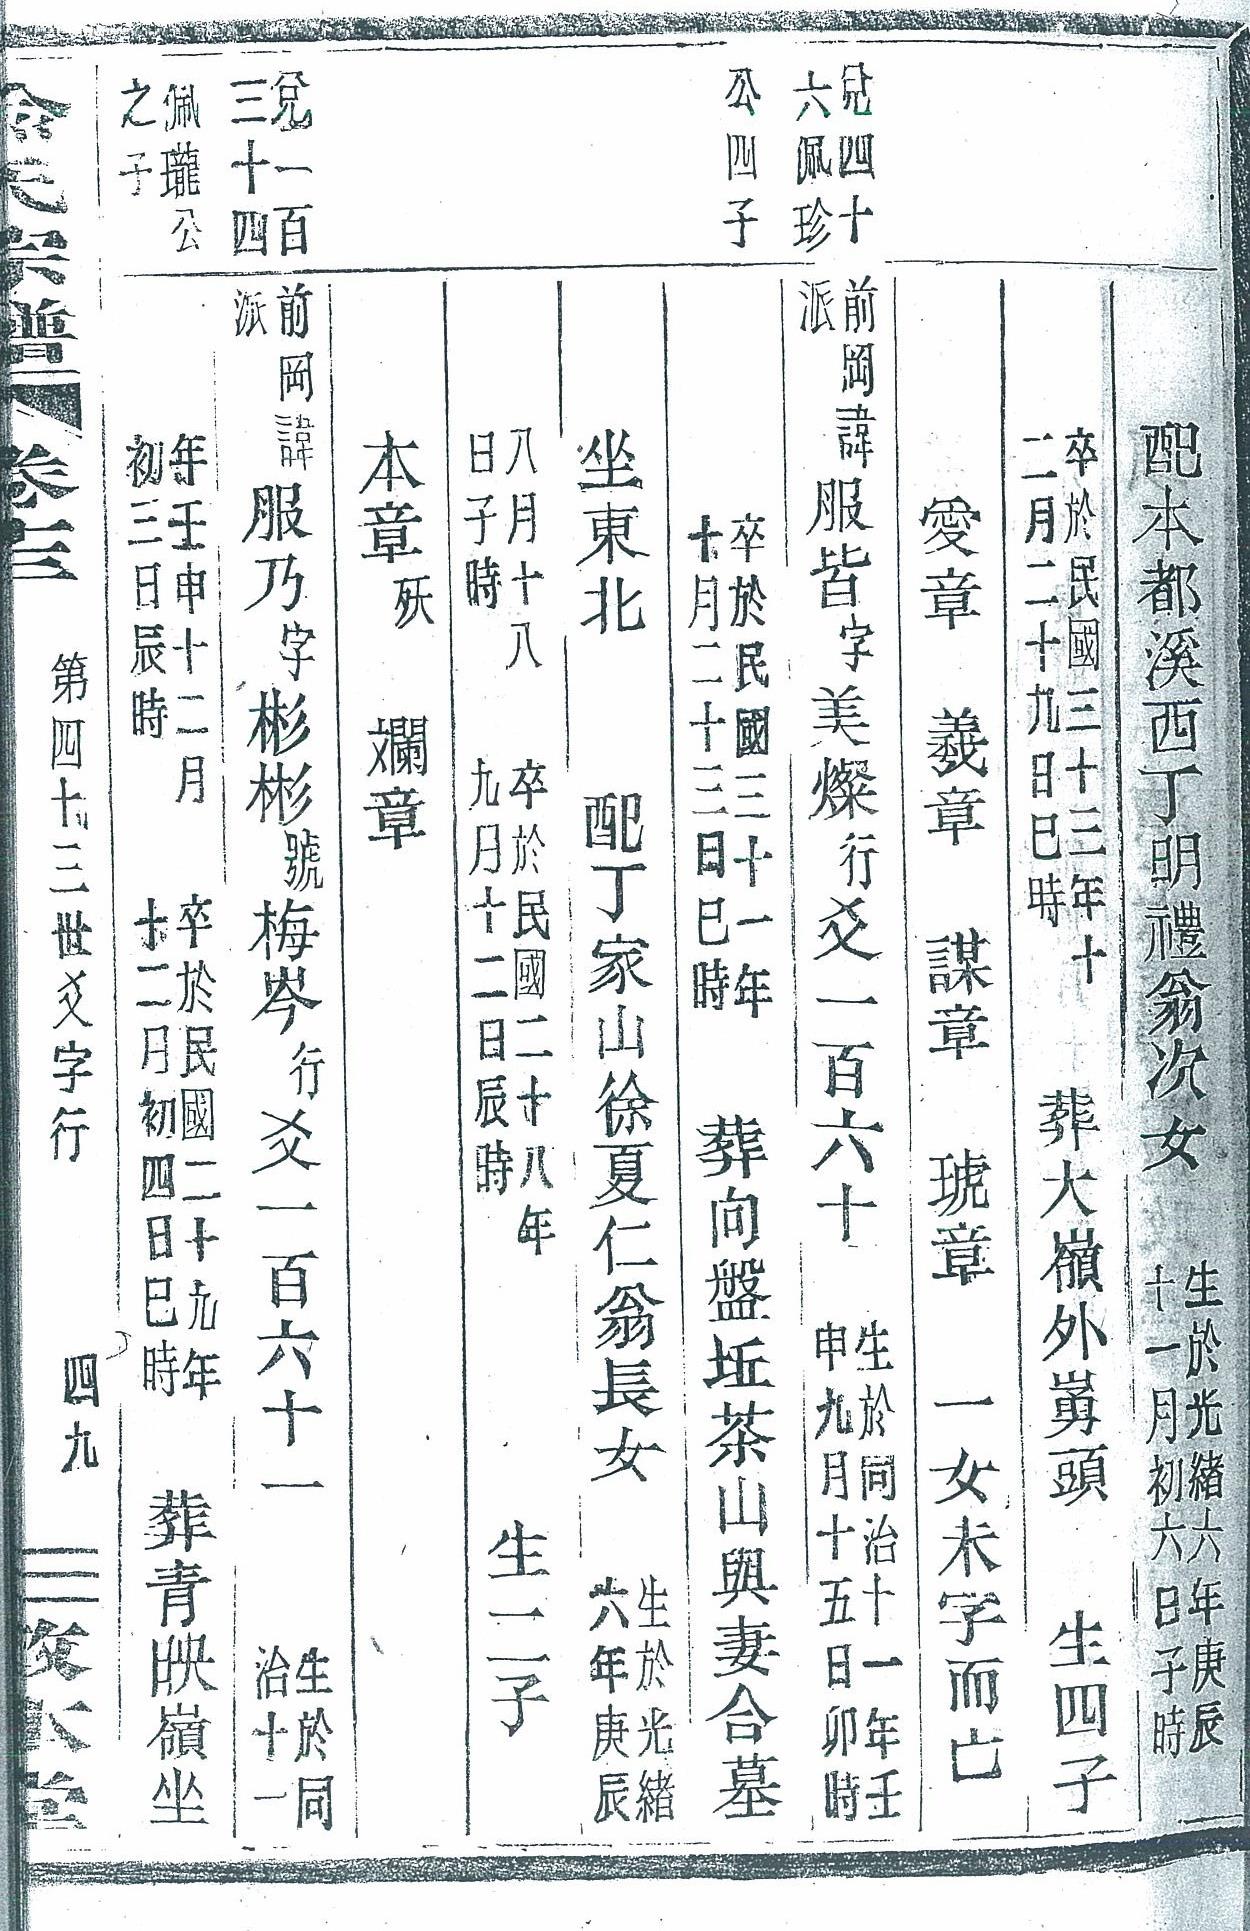 配本都溪西丁明禮翁次女 生於光緒六年庚辰
十一月初六日子時
卒於民國三十三年十
二月二十九日巳時 葬大嶺外嵩頭 生四子
愛章 義章 謀章 琥章 一女未字而亡
兌四十
六佩珍
公四子
前岡諱
派
服皆字美燦行爻一百六十 生於同治十一年壬
申九月十五日卯時
卒於民國三十一年
十月二十三日巳時 葬向盤坵茶山與妻合墓
坐東北 配丁家山徐夏仁翁長女 生於光緒
六年庚辰
八月十八
日子時 卒於民國二十八年
九月十二日辰時 生二子
本章殀 斕章
兌一百
三十四
佩瓏公
之子
前岡諱
派
服乃字彬彬號梅岑行爻一百六十一 生於同
治十一
年壬申十二月
初三日辰時 卒於民國二十九年
十二月初四日巳時 葬青映嶺坐
氏宗譜 卷三 第四十三世爻字行 四九